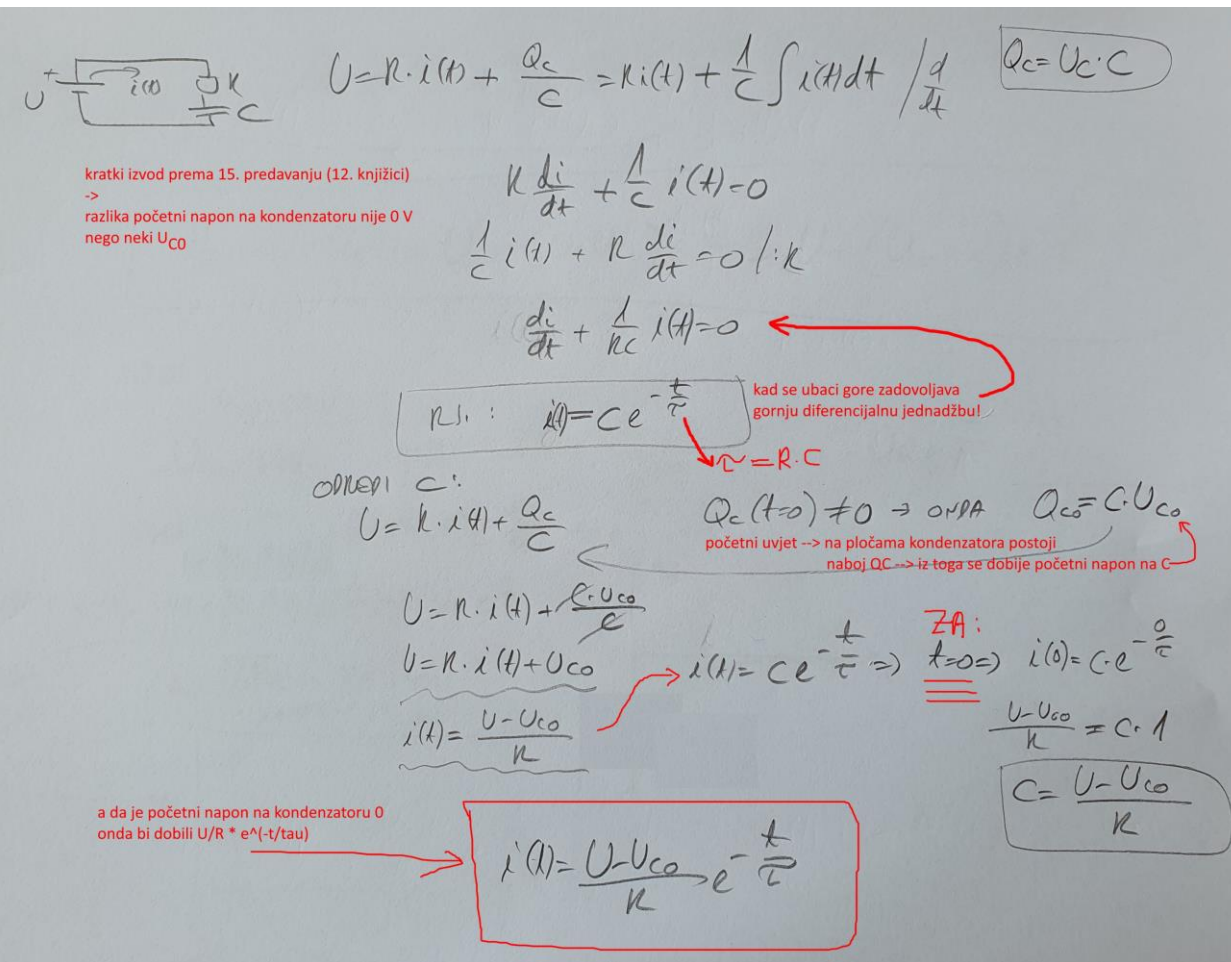 U + i(t) R C
U=R·i(t) + Qc/C = Ri(t) + 1/C ∫i(t)dt / d/dt
Qc=Uc·C
kratki izvod prema 15. predavanju (12. knjižici)
->
razlika početni napon na kondenzatoru nije 0 V
nego neki UC0
R di/dt + 1/C i(t)=0
1/C i(t) + R di/dt =0 /:R
di/dt + 1/RC i(t)=0
kad se ubaci gore zadovoljava
gornju diferencijalnu jednadžbu!
RJ.: i(t)=Ce^-t/τ
τ=R.C
ODREDI C:
U= R·i(t)+ Qc/C
Qc(t=0)≠0 → ONDA Qco=C·Uco
početni uvjet --> na pločama kondenzatora postoji
naboj QC --> iz toga se dobije početni napon na C
U=R·i(t)+ C·Uco/C
U=R·i(t)+Uco
i(t)= U-Uco/R
i(t)= Ce^-t/τ =>
ZA:
t=0=> i(0)=C·e^-0/τ
U-Uco/R = C·1
C= U-Uco/R
a da je početni napon na kondenzatoru 0
onda bi dobili U/R * e^(-t/tau)
i(t)= U-Uco/R e^-t/τ